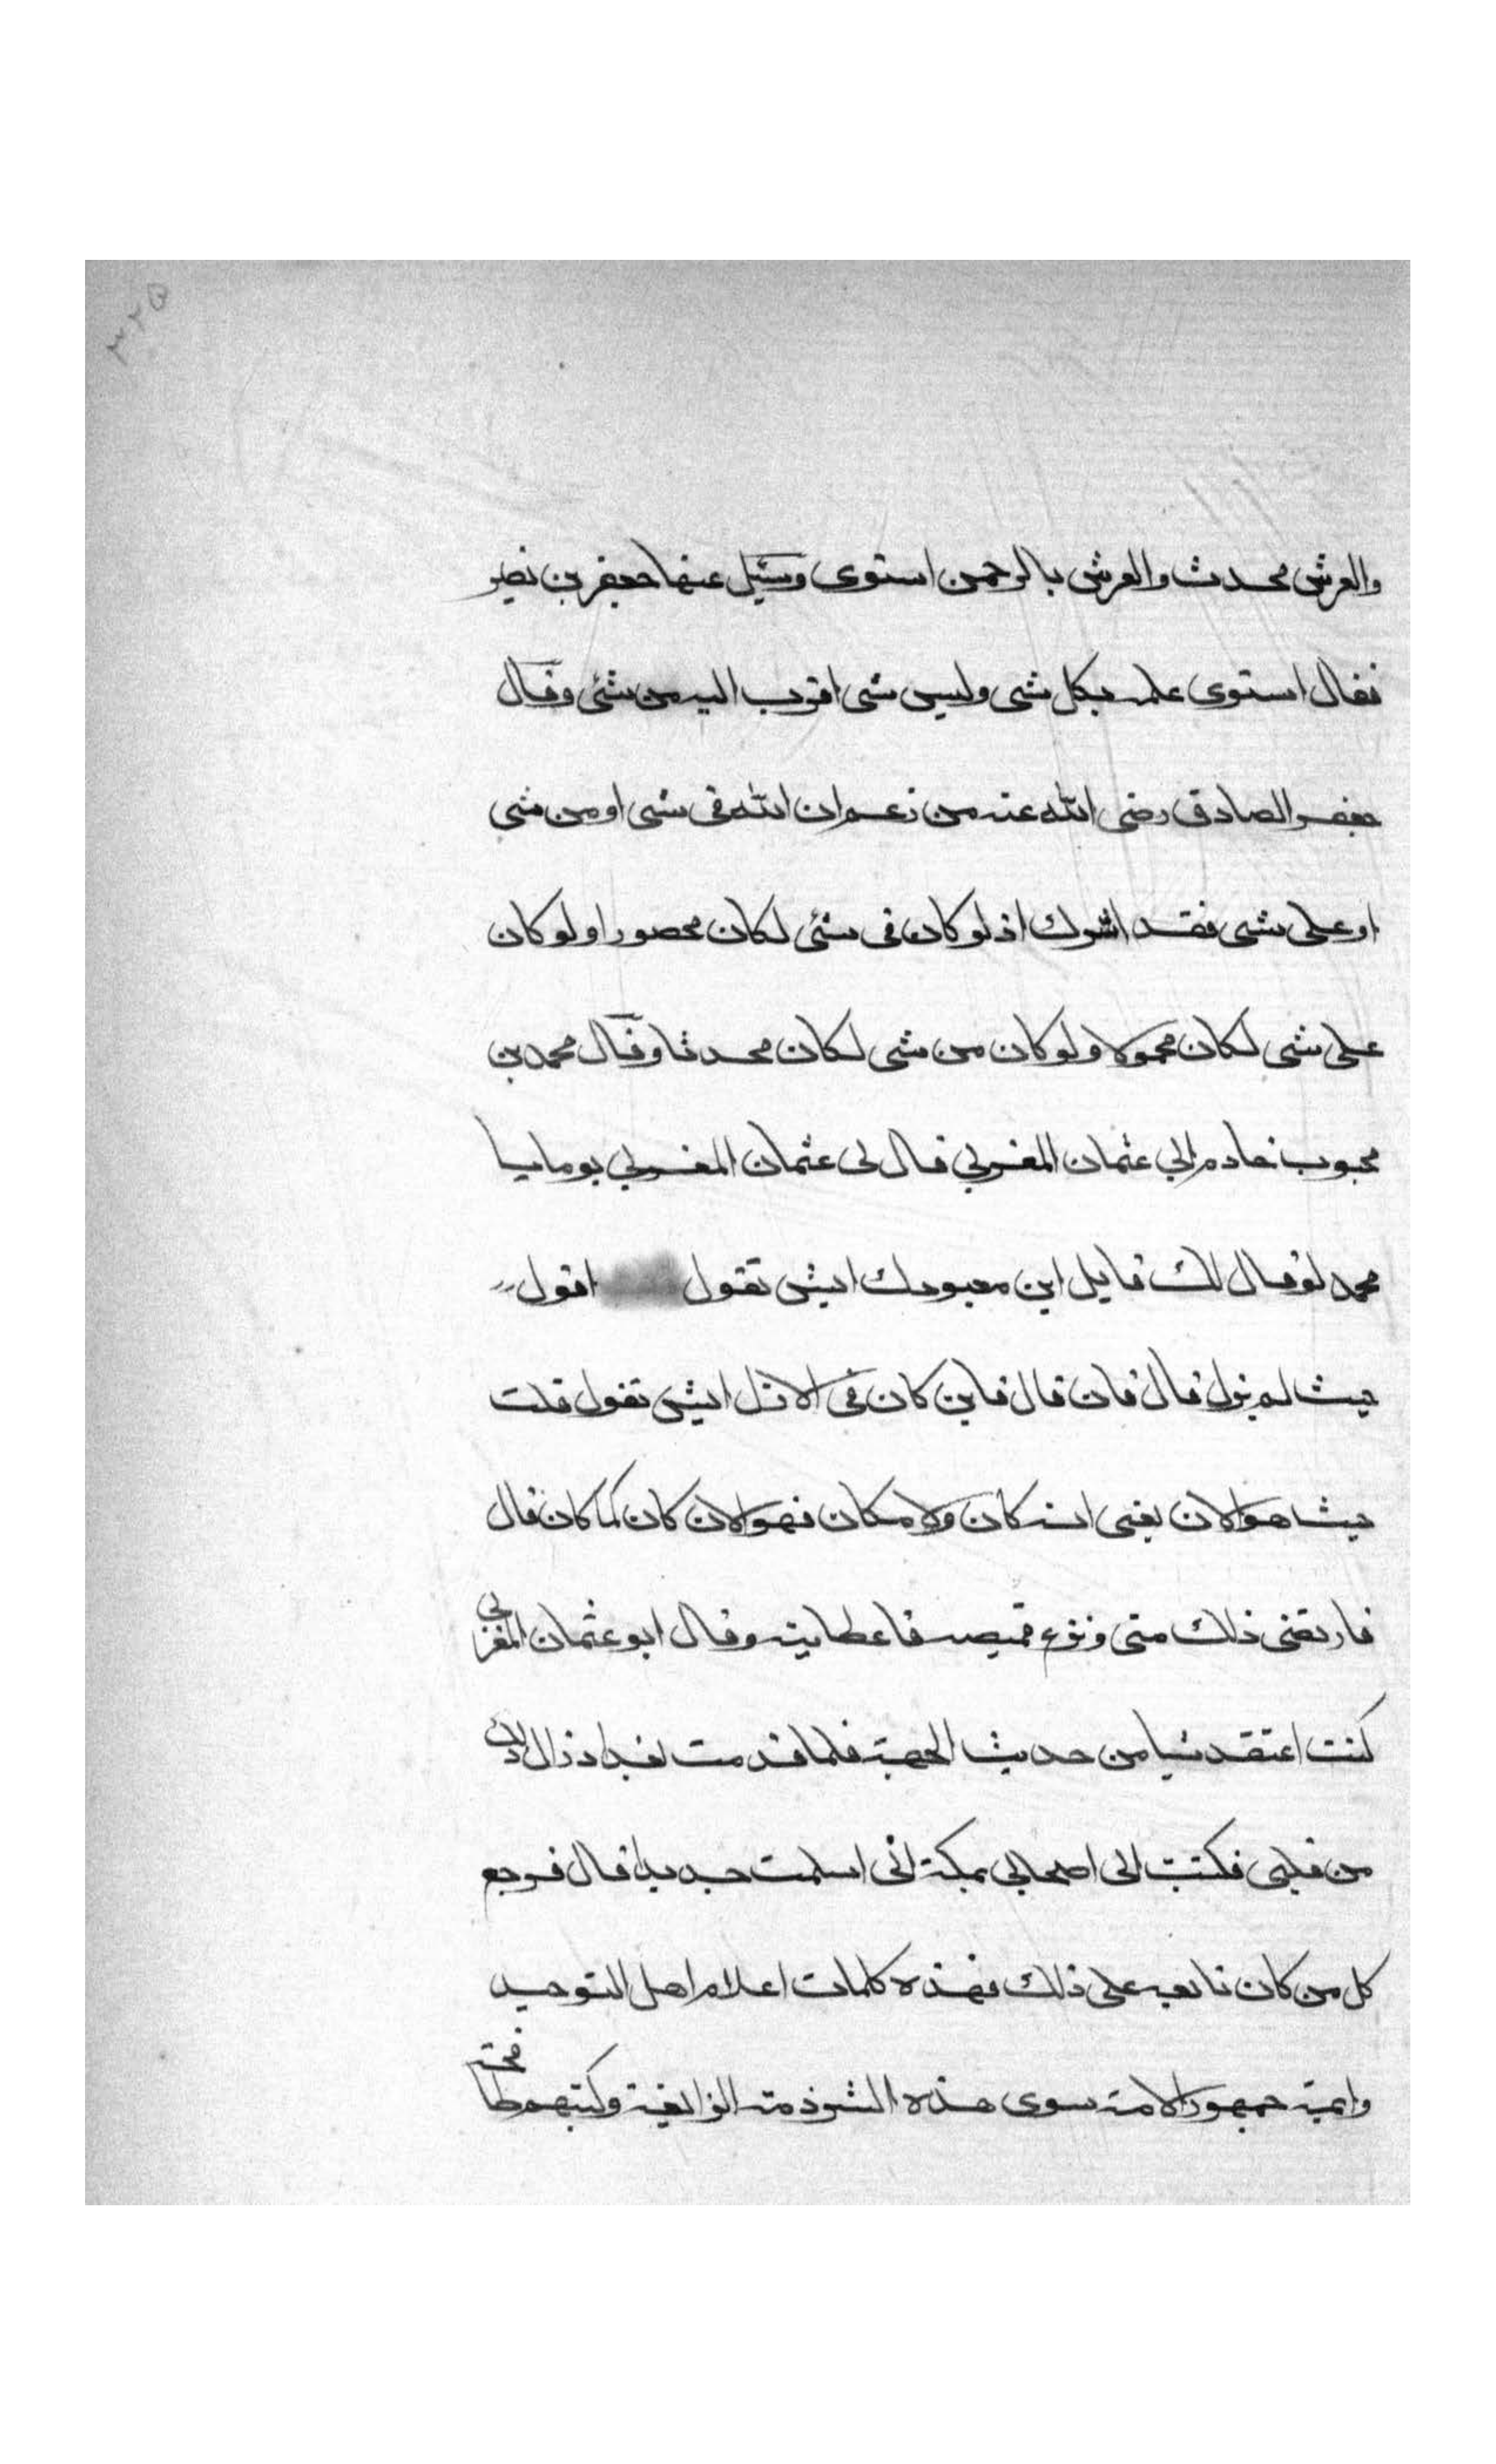 ٣٢٥
والعرش محدث والعرش بالرحمن استوى وسئيل عنها جعفر بن نصير
فقال استوى علمه بكل شى وليس شى اقرب اليه من شئى وقال
جعفر الصادق رضى الله عنه من زعم ان الله فى شى او من شى
او على شى فقد اشرك اذ لو كان فى شئى لكان محصورا ولو كان
على شى لكان محمولا ولو كان من شى لكان محدثا وقال محمد بن
محبوب خادم ابي عثمان المغربي قال لى عثمان المغربي يوما يا
محمد لو قال لك قايل اين معبودك ايش تقول اقول
حيث لم يزل قال فان قال فاين كان فى الازل ايش تقول قلت
حيث هو الان يعنى انه كان ولا مكان فهو الان كان كما كان قال
فارتضى ذلك منى ونزع قميصه فاعطانيه وقال ابو عثمان المغربى
كنت اعتقد شيا من حديث الجهة فلما قدمت بغداد زال ذلك
من قلبى فكتبت الى اصحابي بمكة انى اسلمت جديدا قال فرجع
كل من كان تابعه على ذلك فهذه كلمات اعلام اهل التوحيد
وايمة جمهور الامة سوى هذه الشرذمة الزايغة وكتبهم طافحة